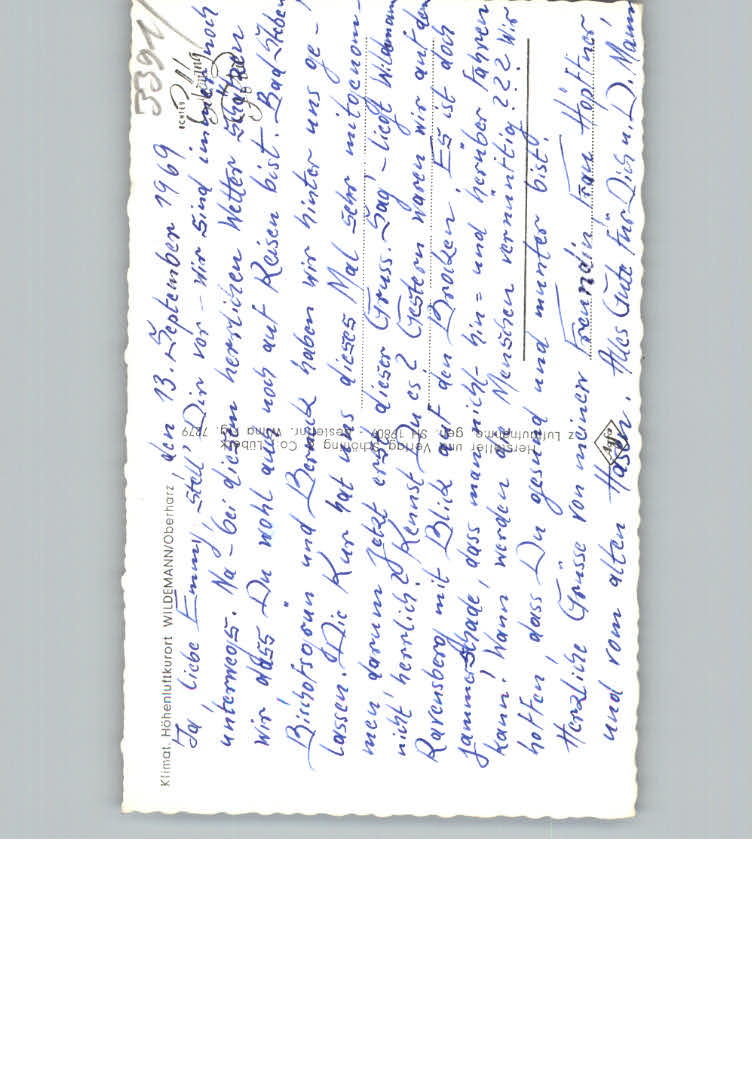 3391
ECHTES
Klimat. Höhenluftkurort WILDEMANN/Oberharz
den 13. September 1969
Ja liebe Emmy, stell' Dir vor – wir sind immer noch
unterwegs. Na – bei diesem herrlichen Wetter schätzen
wir dass Du wohl auch noch auf Reisen bist. Bad Steben
Bischofsgrün und Berneck haben wir hinter uns ge-
lassen. Die Kur hat uns dieses Mal sehr mitgenom-
men darum jetzt erst dieser Gruss. Sag' – liegt Wildemann
nicht herrlich? Kennst Du es? Gestern waren wir auf dem
Ravensberg mit Blick auf den Brocken. Es ist doch
jammerschade, dass man nicht hin= und herüber fahren
kann! Wann werden die Menschen vernünftig??? Wir
hoffen, dass Du gesund und munter bist!
Herzliche Grüsse von meiner Freundin, Frau Höpftner
und vom alten Hasen. Alles Gute für Dich u. D. Mann
Hersteller und Verlag Schöning & Co., Lübeck
Luftaufnahme